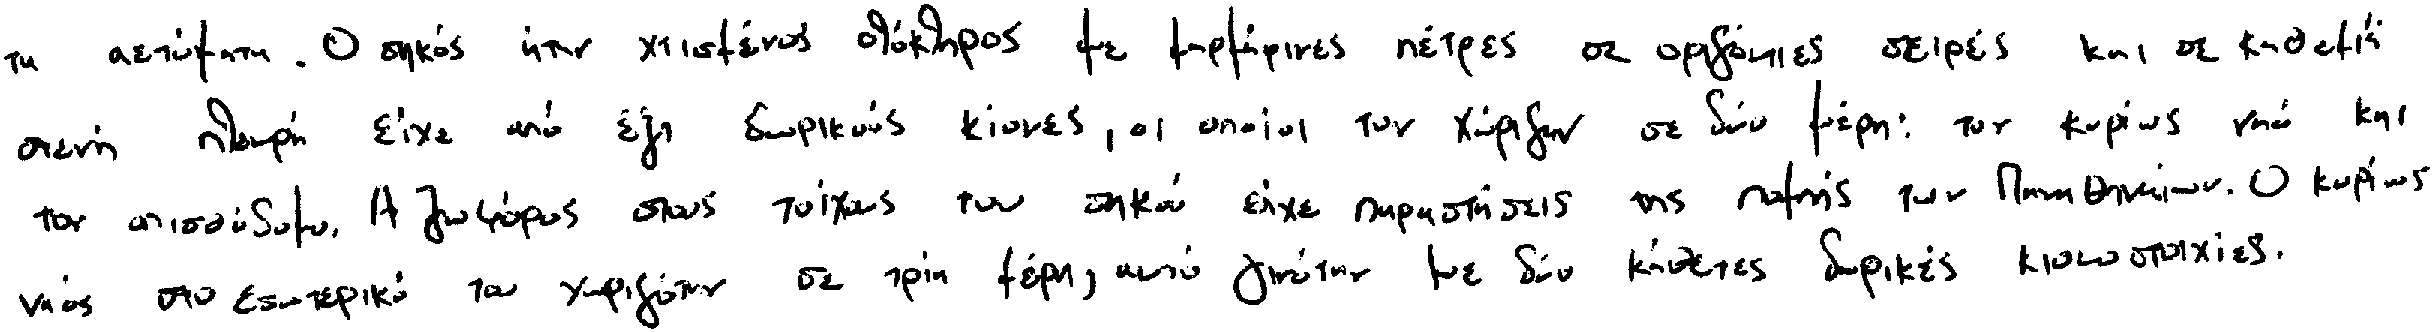 τα αετώματα. Ο σηκός ήταν χτισμένος ολόκληρος με μαρμάρινες πέτρες σε οριζόντιες σειρές και σε καθεμιά
στενή πλευρή είχε από έξι δωρικούς κίονες, οι οποίοι τον χώριζαν σε δύο μέρη: τον κυρίως ναό και
τον οπισθόδομο. Η ζωφόρος στους τοίχους του σηκού είχε παραστάσεις της πομπής των Παναθηναίων. Ο κυρίως
ναός στο εσωτερικό του χωριζόταν σε τρία μέρη, αυτό γινόταν με δύο κάθετες δωρικές κιονοστοιχίες.